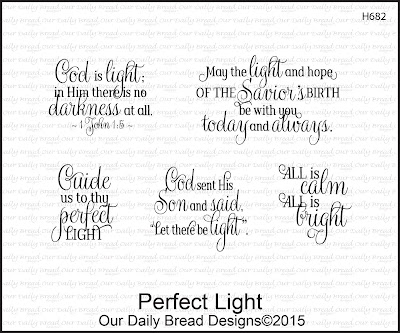 H682
God is light;
in Him there is no
darkness at all.
~ 1 John 1:5 ~
May the light and hope
OF THE Savior's BIRTH
be with you
today and always.
Guide
us to thy
perfect
LIGHT
God sent His
Son and said,
"Let there be light".
ALL is
calm
ALL is
bright
Perfect Light
Our Daily Bread Designs©2015